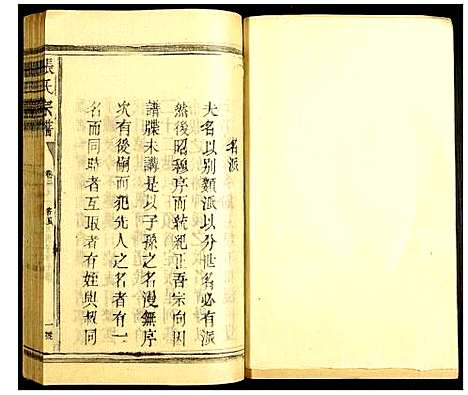 名派
夫名以別類派以分世名必有派
然後昭穆序而統紀正吾宗向因
譜牒未講是以子孫之名漫無序
次有後嗣而犯先人之名者有一
名而同時者互取者有姪與叔同
張氏宗譜
卷二
一號